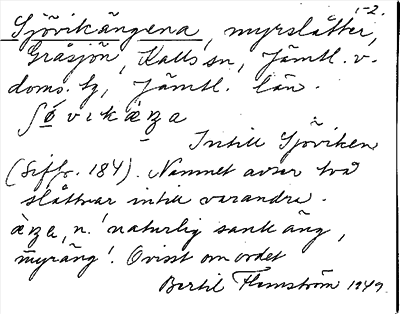 1-2.
Sjövikängena, myrslåtter,
Gråsjön, Kalls sn, Jämtl. v.
doms. tg, Jämtl. län.
Intill Sjöviken
(Siffr. 184). Namnet avser två
slåttrar intill varandra.
n. 'naturlig sank äng,
myräng'. Ovisst om ordet
Bertil Flemström 1949.